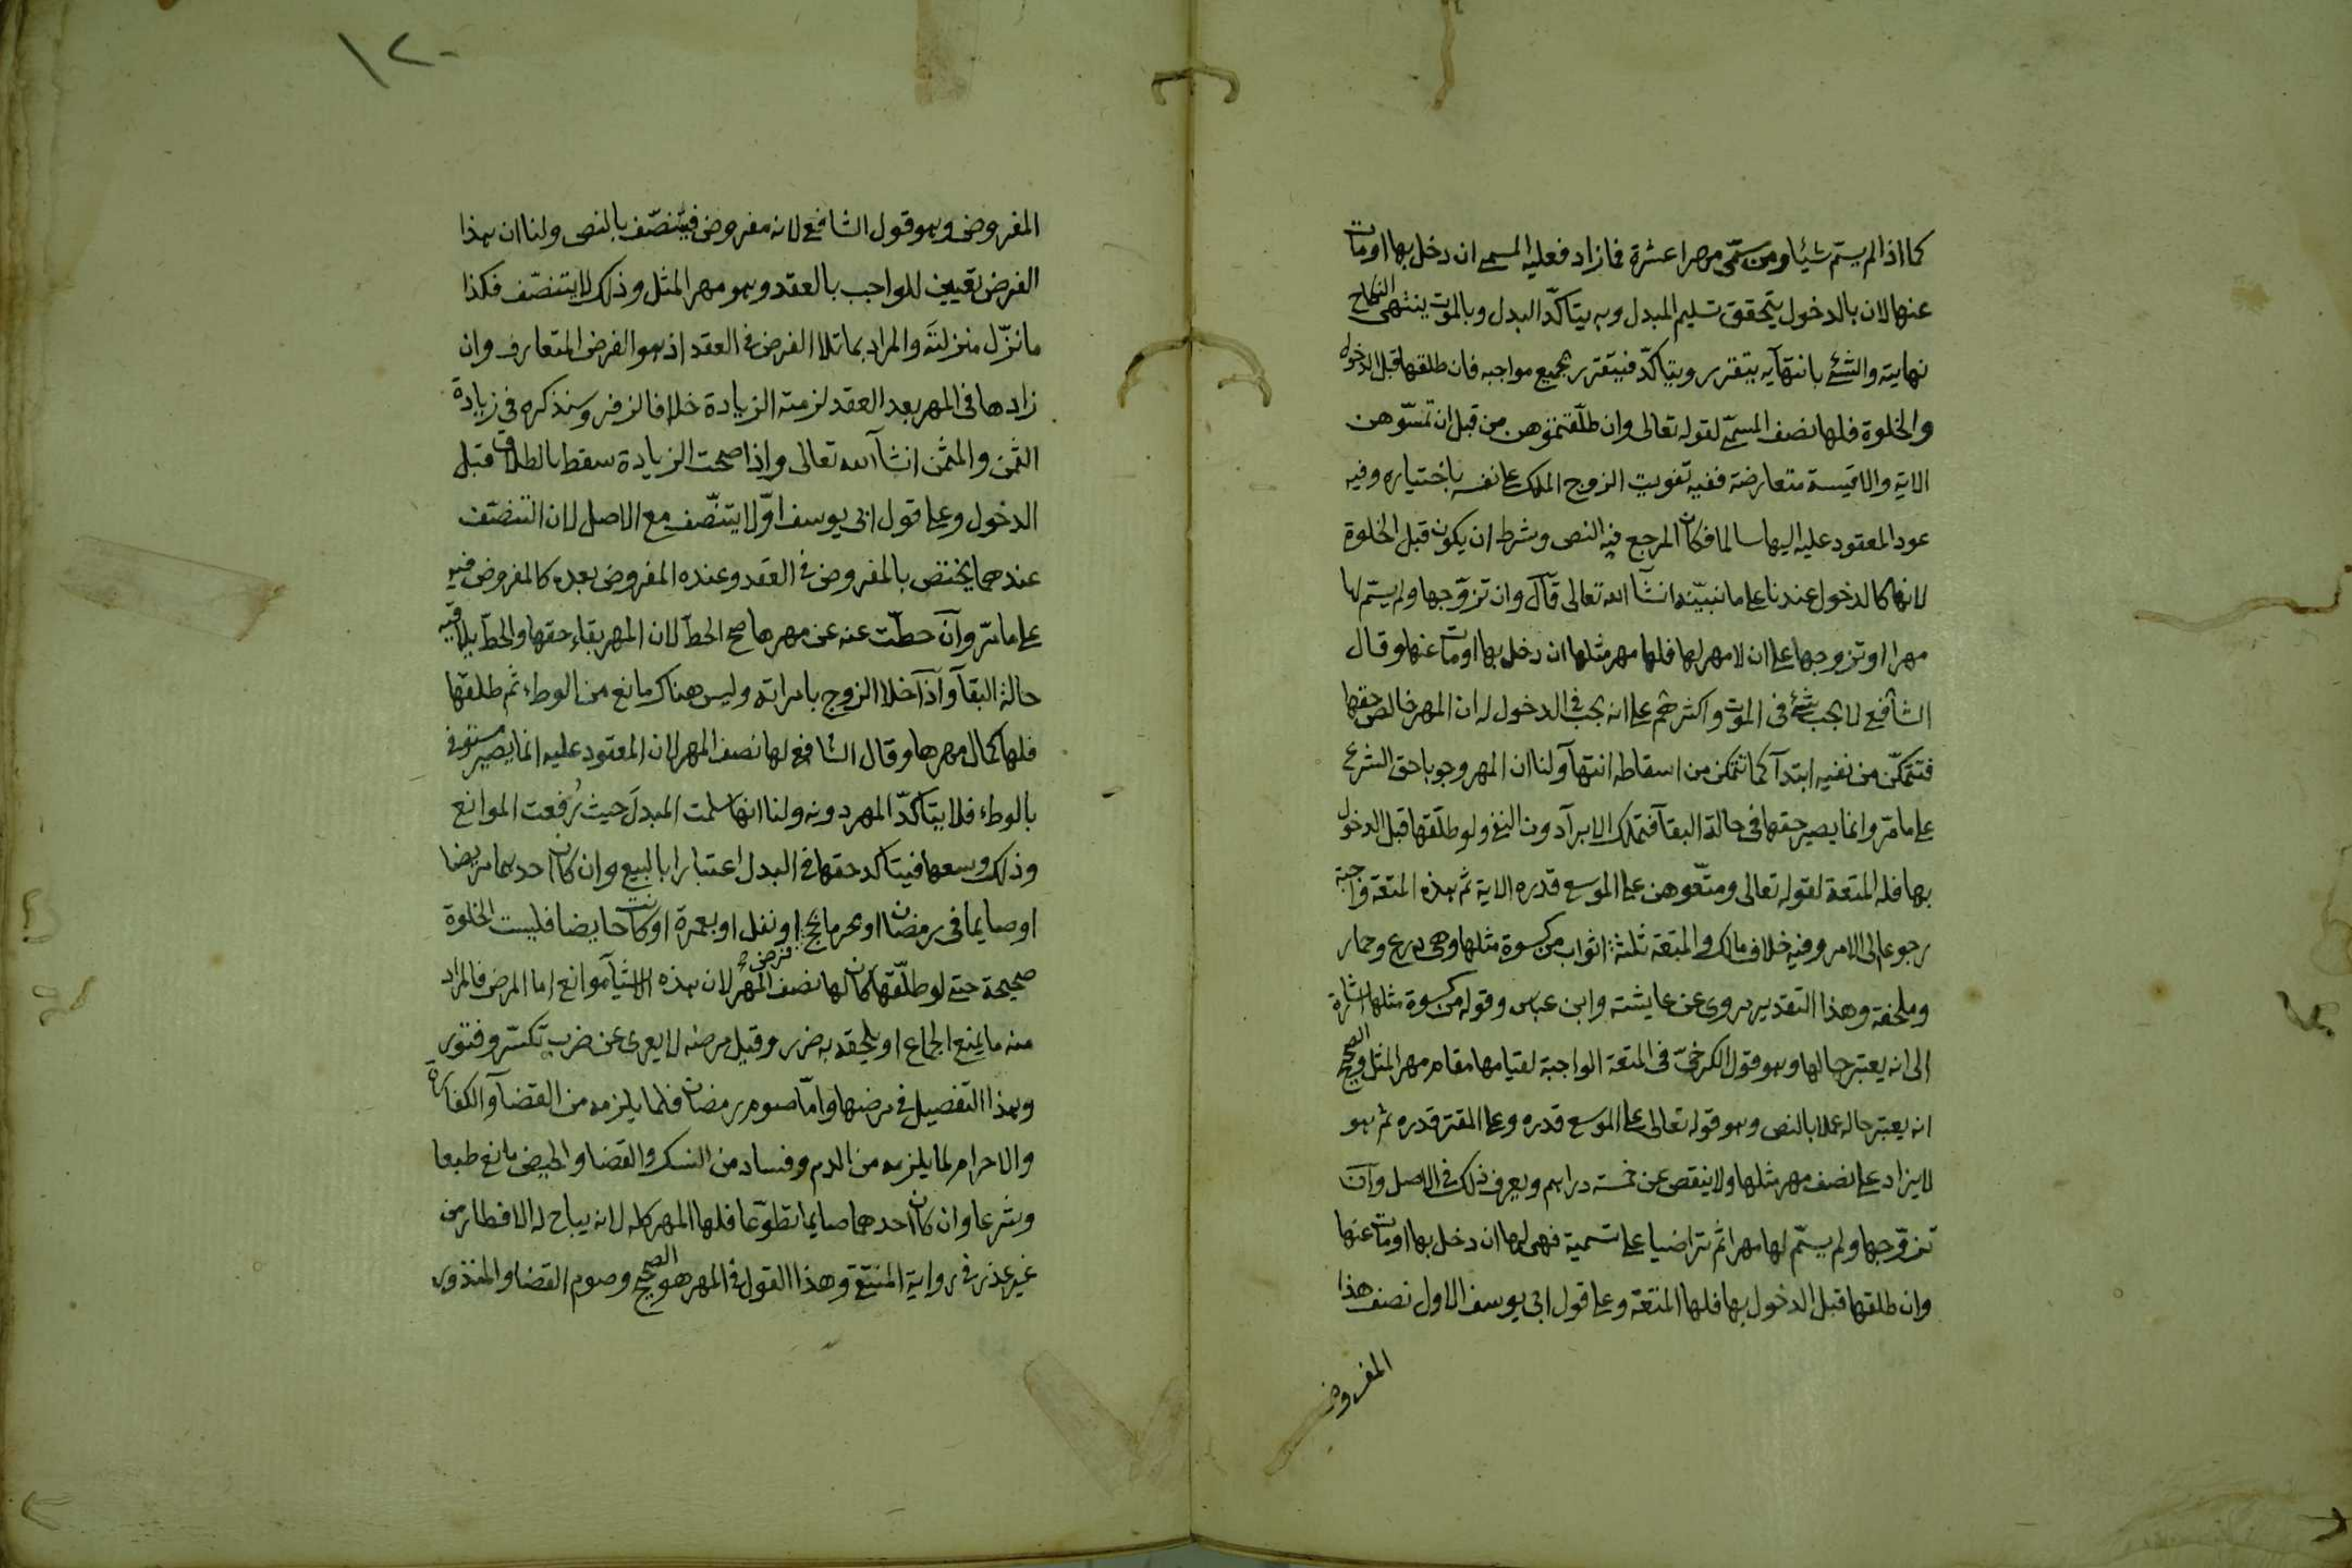 كما اذا لم يسم شيئا ومن سمّى مهرا عشرة فما زاد فعليه المسمى ان دخل بها او مات
عنها لان بالدخول يتحقق تسليم المبدل وبه يتاكّد البدل وبالموت ينتهى النكاح
نهايته والشئ بانتهآيه يتقرر ويتاكّد فيتقرر بجميع مواجبه فان طلقها قبل الدخول
والخلوة فلها نصف المسمّى لقوله تعالى وان طلّقتموهن من قبل ان تمسّوهن
الاية والاقيسة متعارضة ففيه تفويت الزوج الملك على نفسه باختياره وفيه
عود المعقود عليه اليها سالما فكان المرجع فيه النص وشرط ان يكون قبل الخلوة
لانها كالدخول عندنا على ما نبيّنه انشآ الله تعالى قآل وان تزوّجها ولم يسمّ لها
مهرا او تزوجها على ان لا مهر لها فلها مهر مثلها ان دخل بها او مات عنها وقال
الشافعي لا يجب شئ في الموت واكثرهم على انه يجب في الدخول له ان المهر خالص حقها
فتتمكّن من نفيه ابتدآ كما تتمكن من اسقاطه انتهآ ولنا ان المهر وجوبا حق الشرع
على ما مرّ وانما يصير حقها في حالة البقآ فتملك الابرآ دون النفي ولو طلّقها قبل الدخول
بها فله المتعة لقوله تعالى ومتّعوهن على الموسع قدره الاية ثم هذه المتعة واجبة
رجوعا الى الامر وفيه خلاف مالك والمتعة ثلثة اثواب من كسوة مثلها وهي درع وخمار
وملحفة وهذا التقدير مروى عن عايشة وابن عباس وقوله من كسوة مثلها اشارة
الى انه يعتبر حالها وهو قول الكرخيّ في المتعة الواجبة لقيامها مقام مهر المثل والصحيح
انه يعتبر حاله عملا بالنص وهو قوله تعالى على الموسع قدره وعلى المقتر قدره ثم هو
لا يزاد على نصف مهر مثلها ولا ينقص عن خمسة دراهم ويعرف ذلك في الاصل وآن
تزوّجها ولم يسمّ لها مهرا ثم تراضيا على تسمية فهى لها ان دخل بها او مات عنها
وان طلقها قبل الدخول بها فلها المتعة وعلى قول ابي يوسف الاول نصف هذا
المفروض
١٢٠
المفروض وهو قول الشافعي لانه مفروض فيتنصّف بالنص ولنا ان هذا
الفرض تعيين للواجب بالعقد وهو مهر المثل وذلك لا يتنصّف فكذا
ما نزّل منزلتَه والمراد بما تلا الفرض في العقد اذ هو الفرض المتعارف وان
زادها في المهر بعد العقد لزمته الزيادة خلافا لزفر وسنذكره في زيادة
الثمن والمثمن انشآ الله تعالى واذا صحت الزيادة سقط بالطلاق قبل
الدخول وعلى قول ابي يوسف اوّلا يتنصّف مع الاصل لان التنصّف
عندهما يختص بالمفروض في العقد وعنده المفروض بعده كالمفروض فيه
على ما مرّ وآن حطّت عنه عن مهرها صح الحطّ لان المهر بقاء حقها والحطّ يلاقيه
حالة البقآ وآذآ خلا الزوج بامراته وليس هناك مانع من الوطء ثم طلقها
فلها كمال مهرها وقال الشافعي لها نصف المهر لان المعقود عليه انما يصير مستوفى
بالوطء فلا يتاكدّ المهر دونه ولنا انها سلمت المبدلَ حيث رُفعت الموانع
وذلك وسعها فيتاكد حقها في البدل اعتبارا بالبيع وان كان احدهما مريضا
او صايما في رمضان او محرما بحج فرض او نفل او بعمرة او كانت حايضا فليست الخلوة
صحيحة حتى لو طلّقها كان لها نصف المهر لان هذه الاشيآ موانع اما المرض فالمراد
منه ما يمنع الجماع او يلحقه به ضرر وقيل مرضه لا يعرى عن ضرب تكسّر وفتور
وهذا التفصيل في مرضها وامّا صوم رمضان فلما يلزمه من القضآ والكفارة
والاحرام لما يلزمه من الدم وفساد من النسك والقضا والحيض مانع طبعا
وشرعا وان كان احدهما صايما تطوّعا فلها المهر كله لانه يباح له الافطار من
غير عذر في رواية المنتقى وهذا القول في المهر هو الصحيح وصوم القضا والمنذور